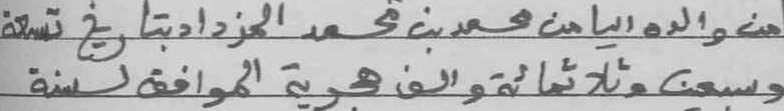 من والده اليامن محمد بن محمد المزداد بتاريخ تسعة
وسبعين وثلاثمائة والف هجرية الموافق لسنة